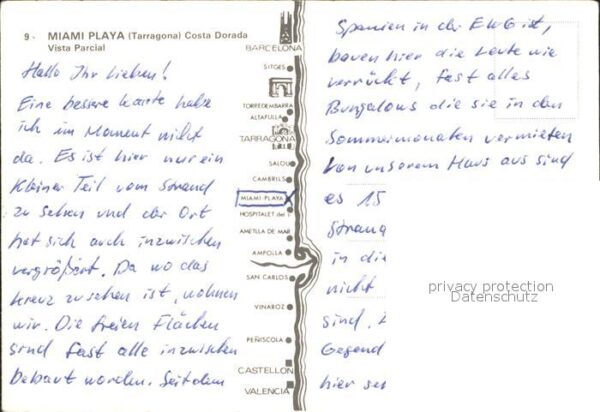 9 - MIAMI PLAYA (Tarragona) Costa Dorada
Vista Parcial
Hallo Ihr Lieben!
Eine bessere Karte habe
ich im Moment nicht
da. Es ist hier nur ein
kleiner Teil vom Strand
zu sehen und der Ort
hat sich auch inzwischen
vergrößert. Da wo das
Kreuz zu sehen ist, wohnen
wir. Die freien Flächen
sind fast alle inzwischen
bebaut worden. Seitdem
BARCELONA
SITGES
TORREDEMBARRA
ALTAFULLA
TARRAGONA
SALOU
CAMBRILS
MIAMI-PLAYA
HOSPITALET del I
AMETLLA DE MAR
AMPOLLA
SAN CARLOS
VINAROZ
PEÑISCOLA
CASTELLON
VALENCIA
Spanien in der EWG ist,
bauen hier die Leute wie
verrückt, fast alles
Bungalows die sie in den
Sommermonaten vermieten
Von unserem Haus aus sind
es 15
Strand
in die
nicht
sind.
Gegend
hier
privacy protection
Datenschutz